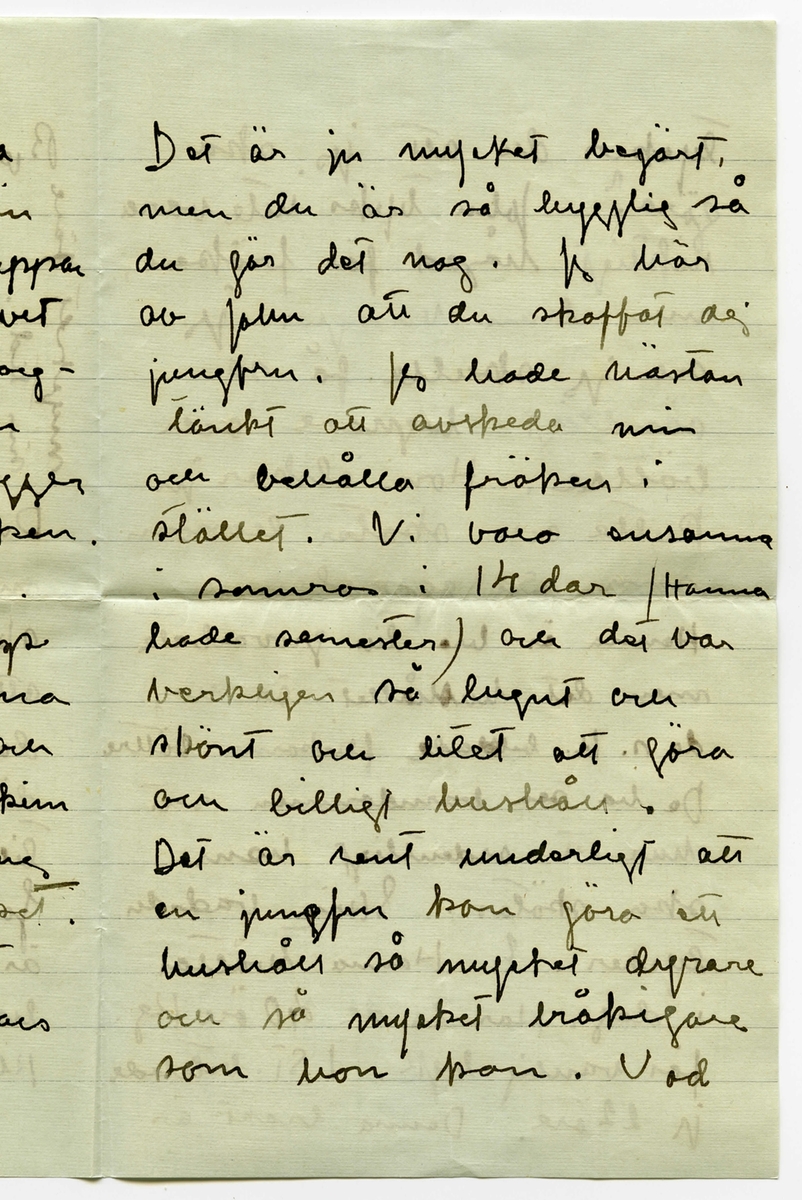 Det är ju mycket begärt,
men du är så hygglig så
du gör det nog. Jg hör
av John att du skaffat dej
jungfru. Jg hade nästan
tänkt att avskeda min
och behålla fröken i
stället. Vi voro ensamma
i somras i 14 dar (Hanna
hade semester) och det var
verkligen så lugnt och
skönt och litet att göra
och billigt hushåll.
Det är rent underligt att
en jungfru kan göra ett
hushåll så mycket dyrare
och så mycket bråkigare
som hon kan. Vad